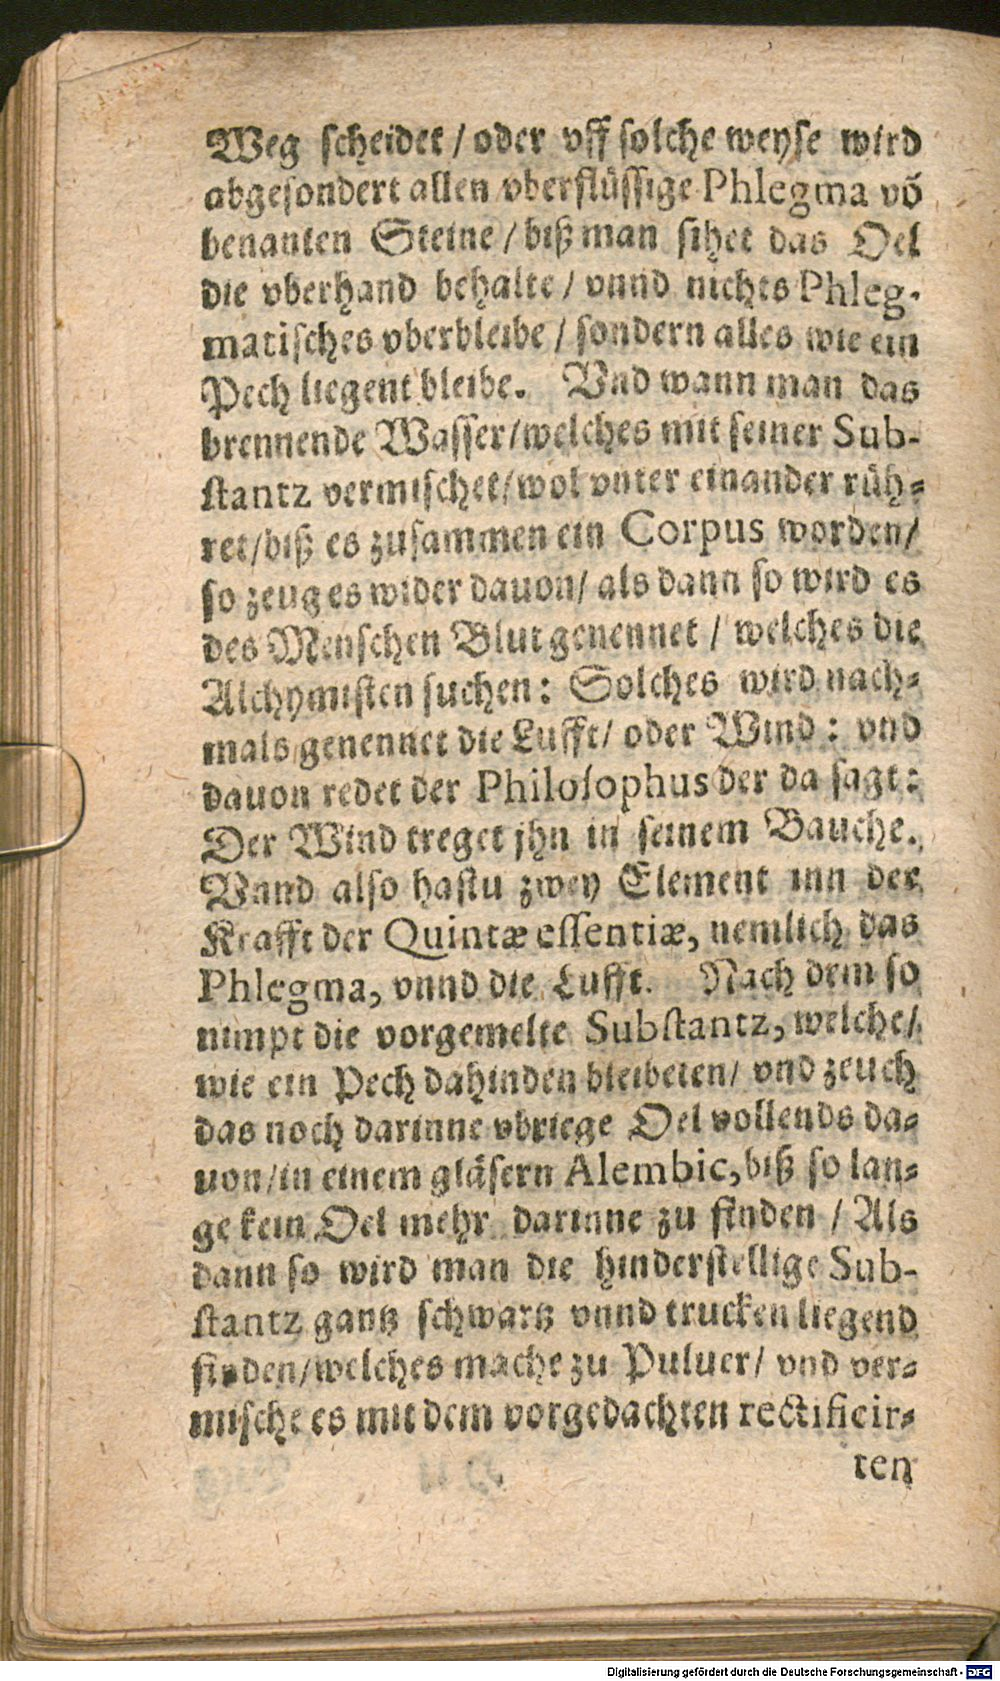 Weg scheidet / oder vff solche weyse wird
abgesondert allen vberflüssige Phlegma võ
benanten Steine / biß man sihet das Oel
die vberhand behalte / vnnd nichts Phleg-
matisches vberbleibe / sondern alles wie ein
Pech liegent bleibe. Vnd wann man das
brennende Wasser/welches mit seiner Sub-
stantz vermischet/wol vnter einander rüh-
ret/biß es zusammen ein Corpus worden/
so zeug es wider dauon/ als dann so wird es
des Menschen Blut genennet / welches die
Alchymisten suchen: Solches wird nach-
mals genennet die Lufft/ oder Wind : vnd
dauon redet der Philosophus der da sagt:
Der Wind treget jhn in seinem Bauche.
Vnnd also hastu zwey Element inn der
Krafft der Quintæ essentiæ, nemlich das
Phlegma, vnnd die Lufft. Nach dem so
nimpt die vorgemelte Substantz, welche/
wie ein Pech dahinden bleibeten/ vnd zeuch
das noch darinne vbriege Oel vollends da-
uon/in einem gläsern Alembic, biß so lan-
ge kein Oel mehr darinne zu finden / Als
dann so wird man die hinderstellige Sub-
stantz gantz schwartz vnnd trucken liegend
finden/welches mache zu Puluer/ vnd ver-
mische es mit dem vorgedachten rectificir-
ten
Digitalisierung gefördert durch die Deutsche Forschungsgemeinschaft - DFG